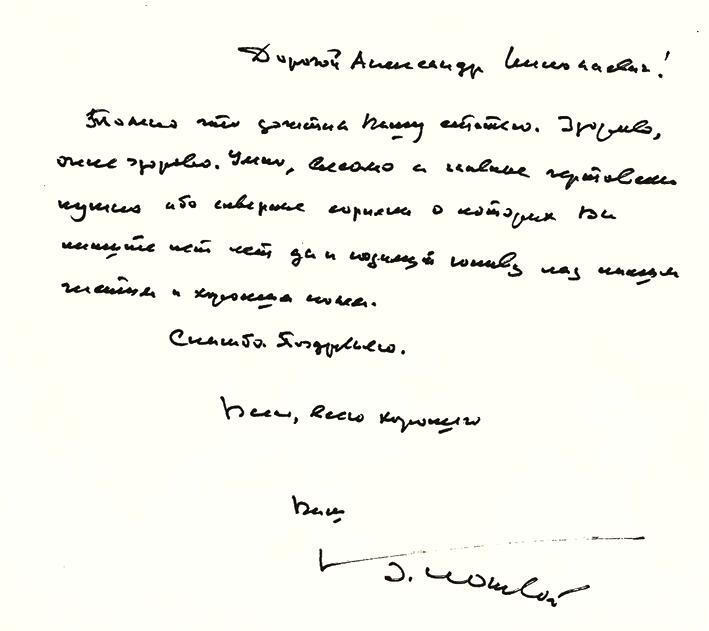 Дорогой Александр Николаевич!
Только что дочитал Вашу статью. Здорово,
очень здорово. Умно, весомо и главное чертовски
нужно ибо скверные о которых Вы
пишите нет нет да и поднимут голову над нашим
чистым и хорошим
Спасибо Поздравляю.
Вам, всего хорошего
Ваш